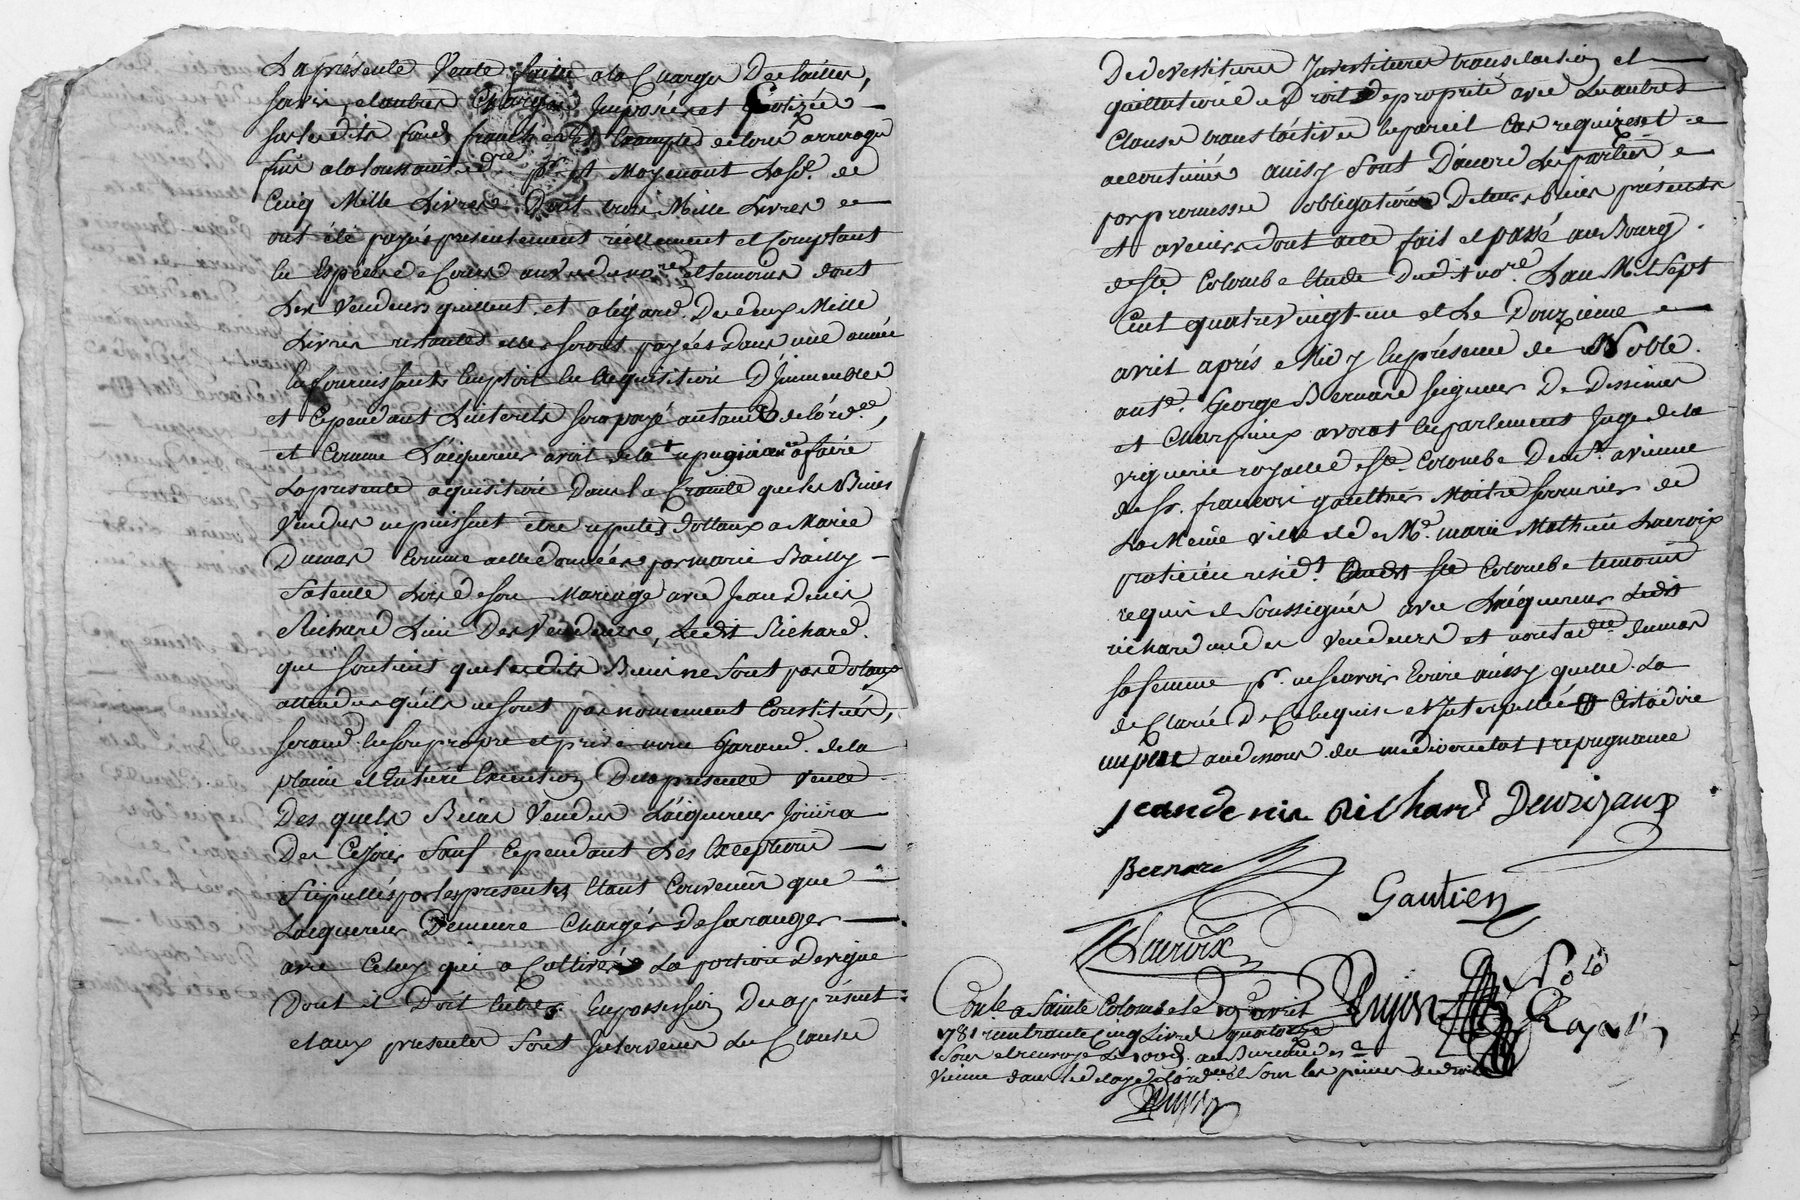 La présente Vente faitte a la Charge De tailles,
servis, et autres Charges Imposés et Cotizée
sur lesdits fond franch et Exempts de tous arrerages
fins a la toussaint dre pnt et Moyenant La se. de
Cinq Mille Livres Dont trois Mille Livres
ont été payés présentement réellement et Comptant
En Espèces de Cours aux vu du nore. et temoins dont
Les Vendeurs quittent, et a légard Des deux Mille
Livres restantes elles seront payées dans une année
En fournissant Employt En acquisition D'Immeubles
et Cependant L'interets sera payé au taux de l'ord.ce,
et Comme L'aiquereur avoit de la repugnance a faire
La presente aquisition Dans la Crainte que les Biens
Vendus ne puissent être reputés dottaux a Marie
Dumas Comme a elle données par marie Bailly
Sa tente Lors de son Mariage avec Jean denis
Richard L'un Des Vendeurs, Ledit Richard
que soutient que lesdits Biens ne sont pas dotaux
attendu qu'ils ne sont pas nomement Constitués,
serand En son propre et privé nom Garand de la
plaine et Entiere Execution De la presente vente
Des quels Biens Vendus L'aiquereur Jouira
Des Ce jour Sauf Cependant Les Exceptions
Stipullés par les presentes Etant Convenus que
L'acquereur Demeure Chargés De saranger
avec Celuy qui a Cultivé La portion De vigne
Dont il Doit Entrer En possession Des a présent
et aux presentes sont Intervenus Les Clauses
De devestitures Investitures translation et
quittation de Droit De propriété avec Les autres
Clauses translatives En pareil Cas requizes et
accoutumés ainsy Sont D'acord Les parties
par promesse obligation De leurs biens présents
et avenirs dont acte fait et passé au Bourg
de Ste. Colombe Etude Dudit nore. L'an Mil Sept
Cent quatre vingt un et Le Douzieme
avril aprés Midy En présence de Noble
ante. George Bernard seigneur De Dessimes
et Charpieux avocat En parlement Juge de la
viguerie royalle de Ste. Colombe Demt. a vienne
de Sr. francois gaulthier Maitre serrurier de
La Même ville et de Me. marie Mathieu Lacroix
praticien resid.t Ste Colombe temoins
requis et Soussignés avec L'aiquereur Ledit
richard un des Vendeurs et non lad.tte Dumas
sa femme pr. ne savoir Ecrire ainsy quelle La
de Clarée De Ce Enquise et Interpellée Cistadire
un peu audessous du mediocre repugnance
Jean denis Richard Devrigaux
Bernard
Gautier
Lacroix
Conle a Sainte Colombe le 19 avril
1781 reçu trente Cinq Livres quatorze
Sous et renvoyé Le 100e. au Bureau de
Vienne dans le delay de l'ord.ce et Sous les peines de droit